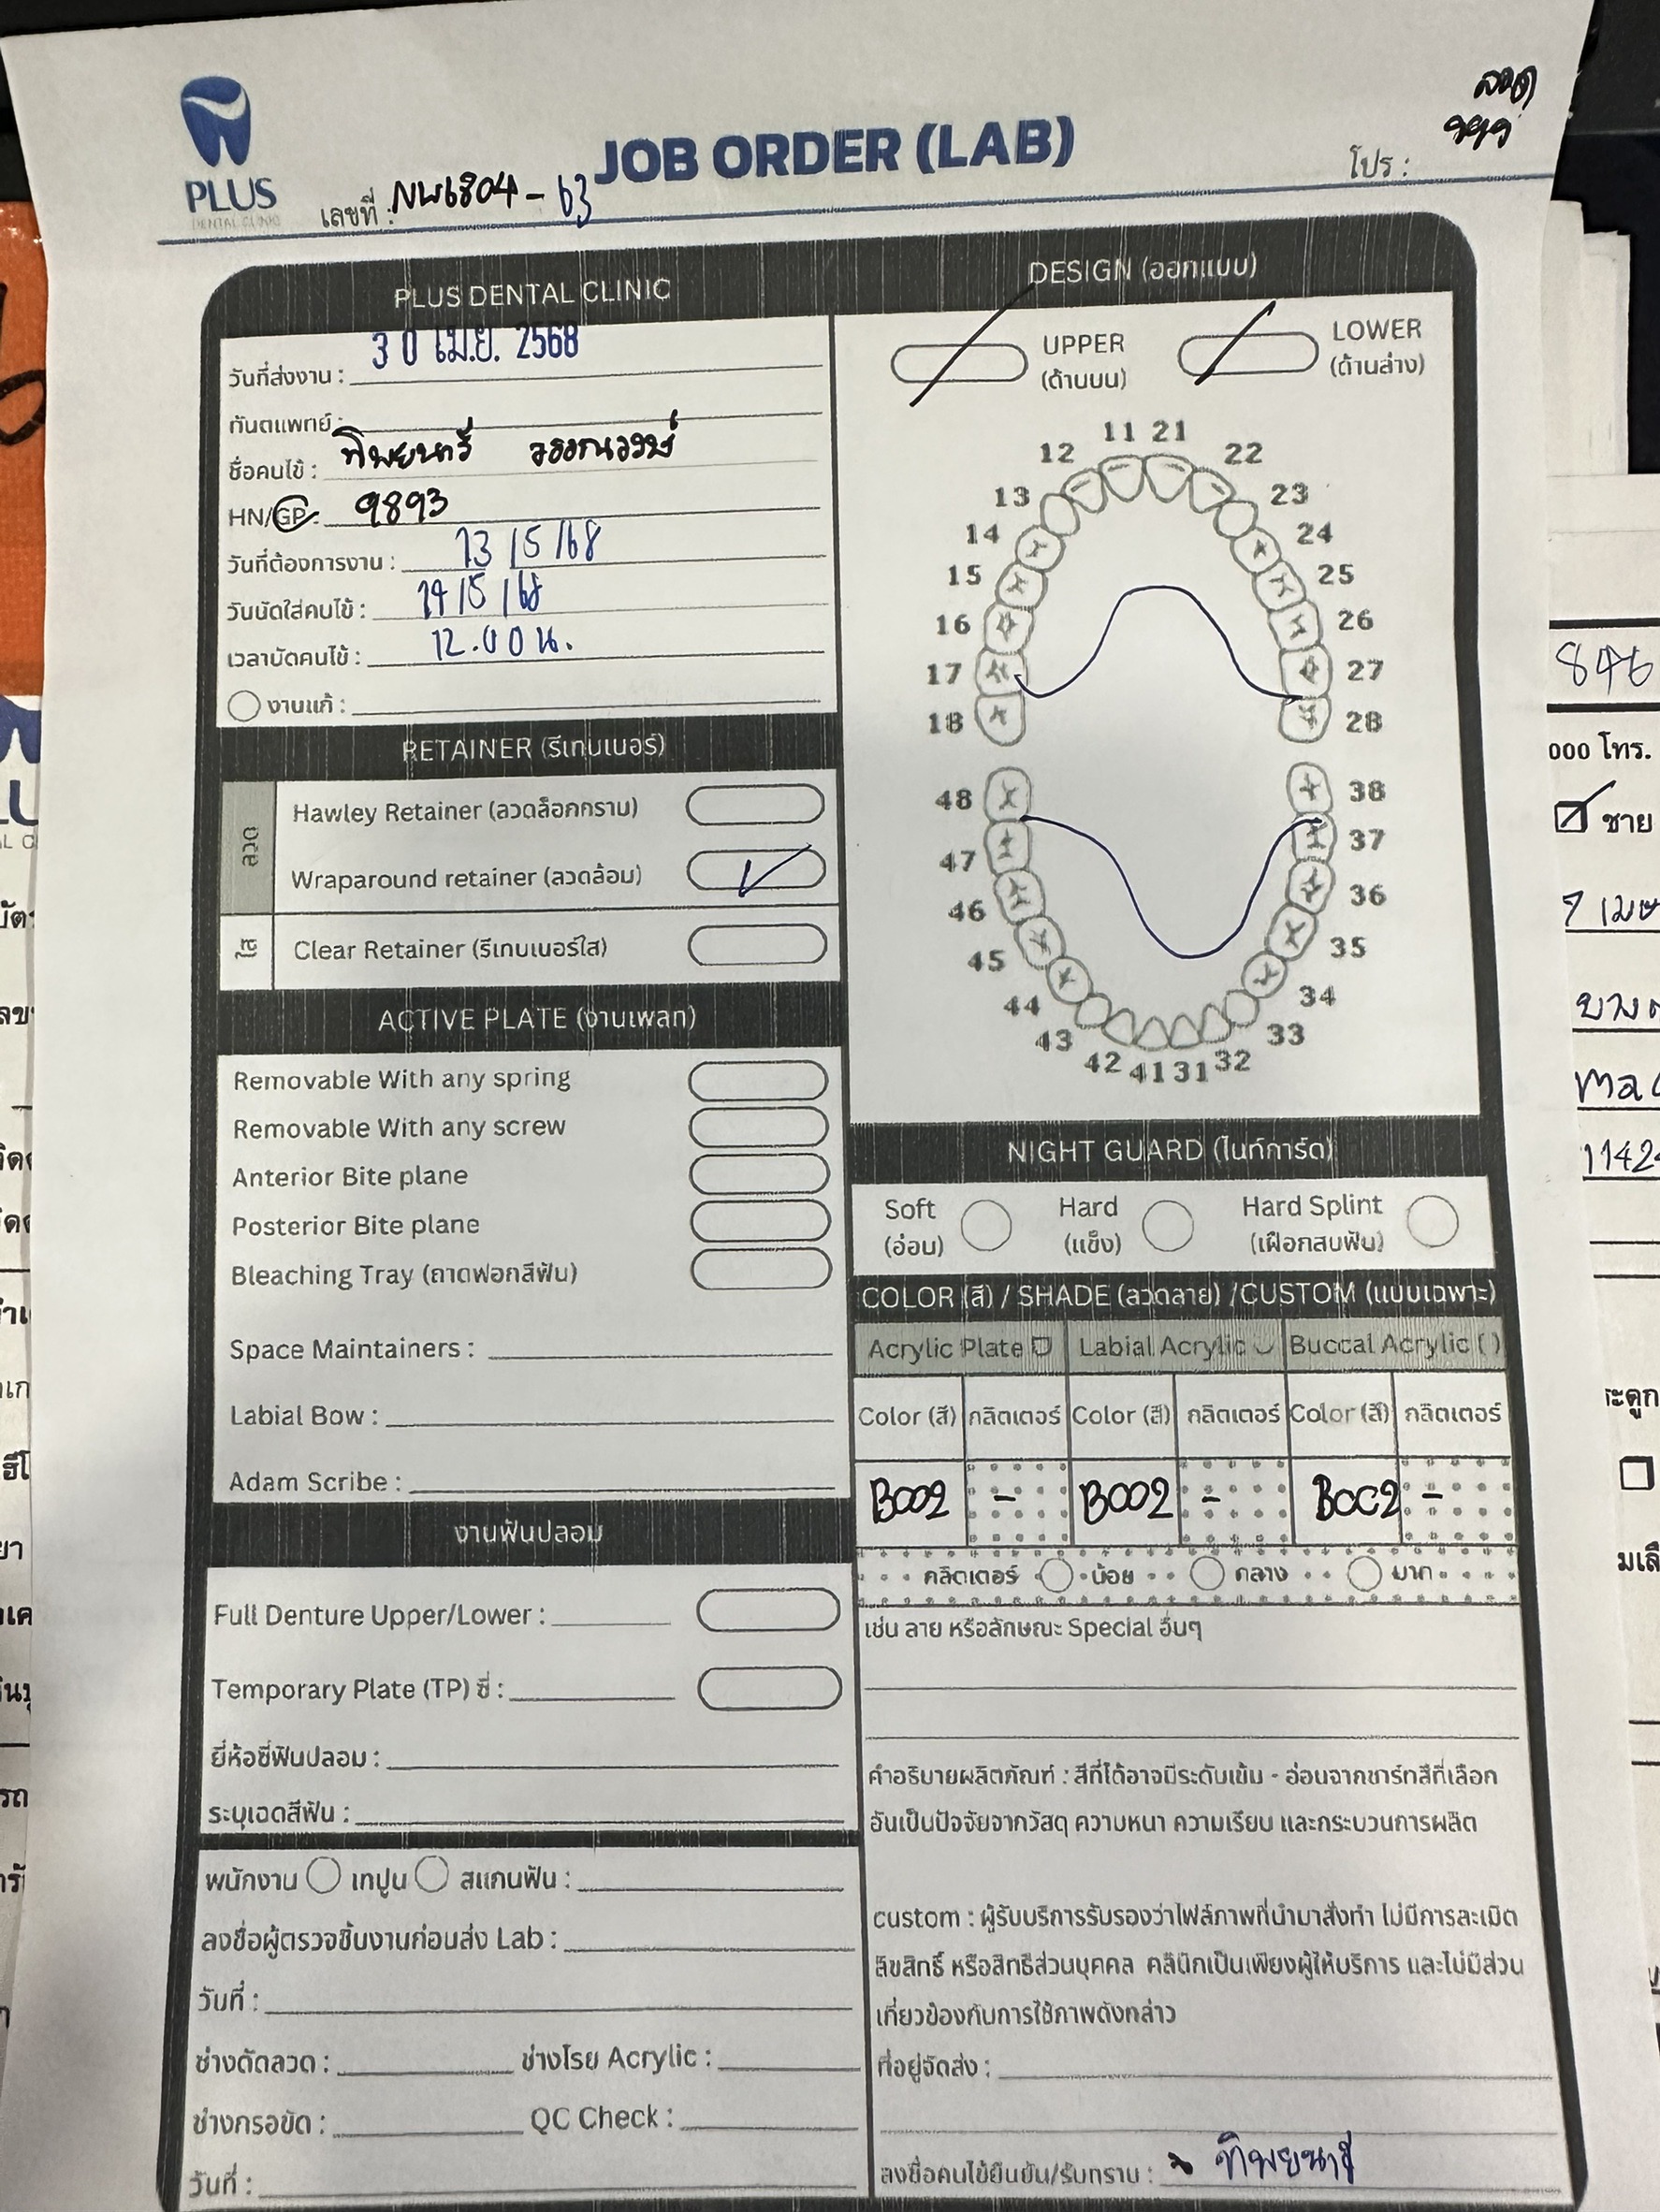 ลวด
999
PLUS
DENTAL CLINIC
JOB ORDER (LAB)
เลขที่ : NW6804 - 63
โปร :
PLUS DENTAL CLINIC
วันที่ส่งงาน : 30 เม.ย. 2568
ทันตแพทย์ :
ชื่อคนไข้ : ทิพยนารี
HN/GP : 9893
วันที่ต้องการงาน : 13/5/68
วันนัดใส่คนไข้ : 14/5/68
เวลานัดคนไข้ : 12.00 น.
งานแก้ :
RETAINER (รีเทนเนอร์)
ลวด
Hawley Retainer (ลวดล็อกกราม)
Wraparound retainer (ลวดล้อม)
ใส
Clear Retainer (รีเทนเนอร์ใส)
ACTIVE PLATE (งานเพลท)
Removable With any spring
Removable With any screw
Anterior Bite plane
Posterior Bite plane
Bleaching Tray (ถาดฟอกสีฟัน)
Space Maintainers :
Labial Bow :
Adam Scribe :
งานฟันปลอม
Full Denture Upper/Lower :
Temporary Plate (TP) ซี่ :
ยี่ห้อซี่ฟันปลอม :
ระบุเฉดสีฟัน :
พนักงาน เทปูน สแกนฟัน :
ลงชื่อผู้ตรวจชิ้นงานก่อนส่ง Lab :
วันที่ :
ช่างดัดลวด : ช่างโรย Acrylic :
ช่างกรอขัด : QC Check :
วันที่ :
DESIGN (ออกแบบ)
UPPER (ด้านบน) LOWER (ด้านล่าง)
11 21
12 22
13 23
14 24
15 25
16 26
17 27
18 28
48 38
47 37
46 36
45 35
44 34
43 33
42 41 31 32
NIGHT GUARD (ไนท์การ์ด)
Soft (อ่อน) Hard (แข็ง) Hard Splint (เฝือกสบฟัน)
COLOR (สี) / SHADE (ลวดลาย) /CUSTOM (แบบเฉพาะ)
Acrylic Plate Labial Acrylic Buccal Acrylic ( )
Color (สี) กลิตเตอร์ Color (สี) กลิตเตอร์ Color (สี) กลิตเตอร์
B002 - B002 - B002 -
กลิตเตอร์ น้อย กลาง มาก
เช่น ลาย หรือลักษณะ Special อื่นๆ
คำอธิบายผลิตภัณฑ์ : สีที่ได้อาจมีระดับเข้ม - อ่อนจากชาร์ทสีที่เลือก
อันเป็นปัจจัยจากวัสดุ ความหนา ความเรียบ และกระบวนการผลิต
custom : ผู้รับบริการรับรองว่าไฟล์ภาพที่นำมาสั่งทำ ไม่มีการละเมิด
ลิขสิทธิ์ หรือสิทธิส่วนบุคคล คลินิกเป็นเพียงผู้ให้บริการ และไม่มีส่วน
เกี่ยวข้องกับการใช้ภาพดังกล่าว
ที่อยู่จัดส่ง :
ลงชื่อคนไข้ยืนยัน/รับทราบ : ทิพยนารี
846
000 โทร.
ชาย